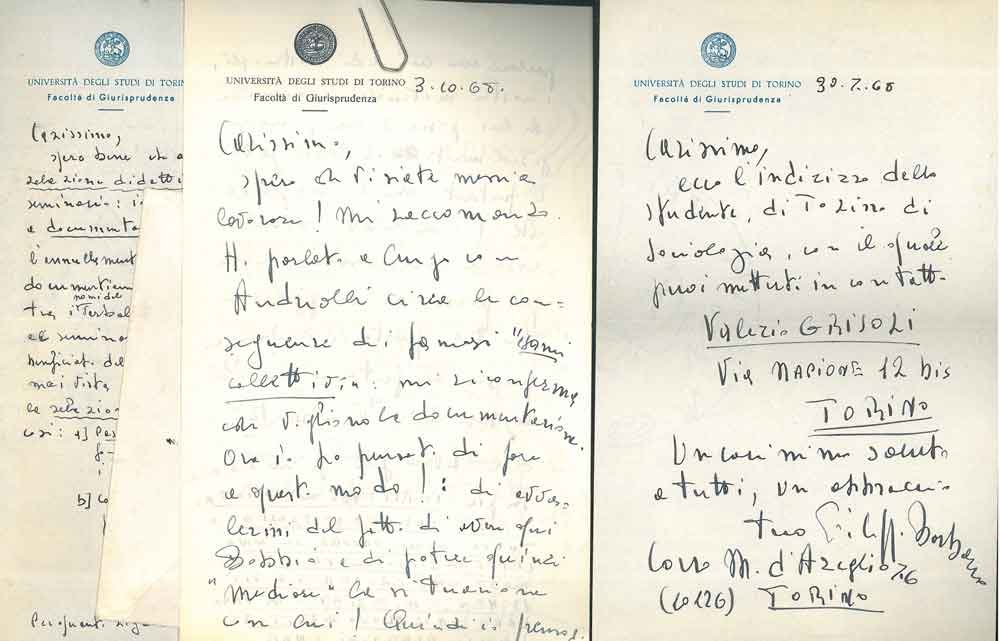 UNIVERSITÀ DEGLI STUDI DI TORIN
Facoltà di Giurisprudenza
Carissimo,
spero bene che a
relazione didatti
seminario: i
e documenta
l'annullament
documentazion
nomi del
tra i
al semina
del
mai vista
la relazion
così: a]
b] co
UNIVERSITÀ DEGLI STUDI DI TORINO 3.10.68.
Facoltà di Giurisprudenza
Carissimo,
spero che vi siate messi a
lavorare! Mi raccomando.
H. parlato a lungo con
Andreolli circa le con-
seguenze di famosi "esami
collettivi": mi riconferma
che vogliono la documentazione.
Ora io ho pensato di fare
a questo modo!: di avva-
lermi del fatto di aver qui
Bobbio e di poter quindi
"mediare" la situazione
con lui! Quindi io penso
UNIVERSITÀ DEGLI STUDI DI TORINO 30.7.68
Facoltà di Giurisprudenza
Carissimo,
ecco l'indirizzo dello
studente, di Torino di
Sociologia, con il quale
puoi metterti in contatto.
Valerio GRISOLI
Via NAZIONE 12 bis
TORINO
Un carissimo saluto
a tutti, un abbraccio
tuo
Corso M. d'Azeglio 76
(10126) TORINO